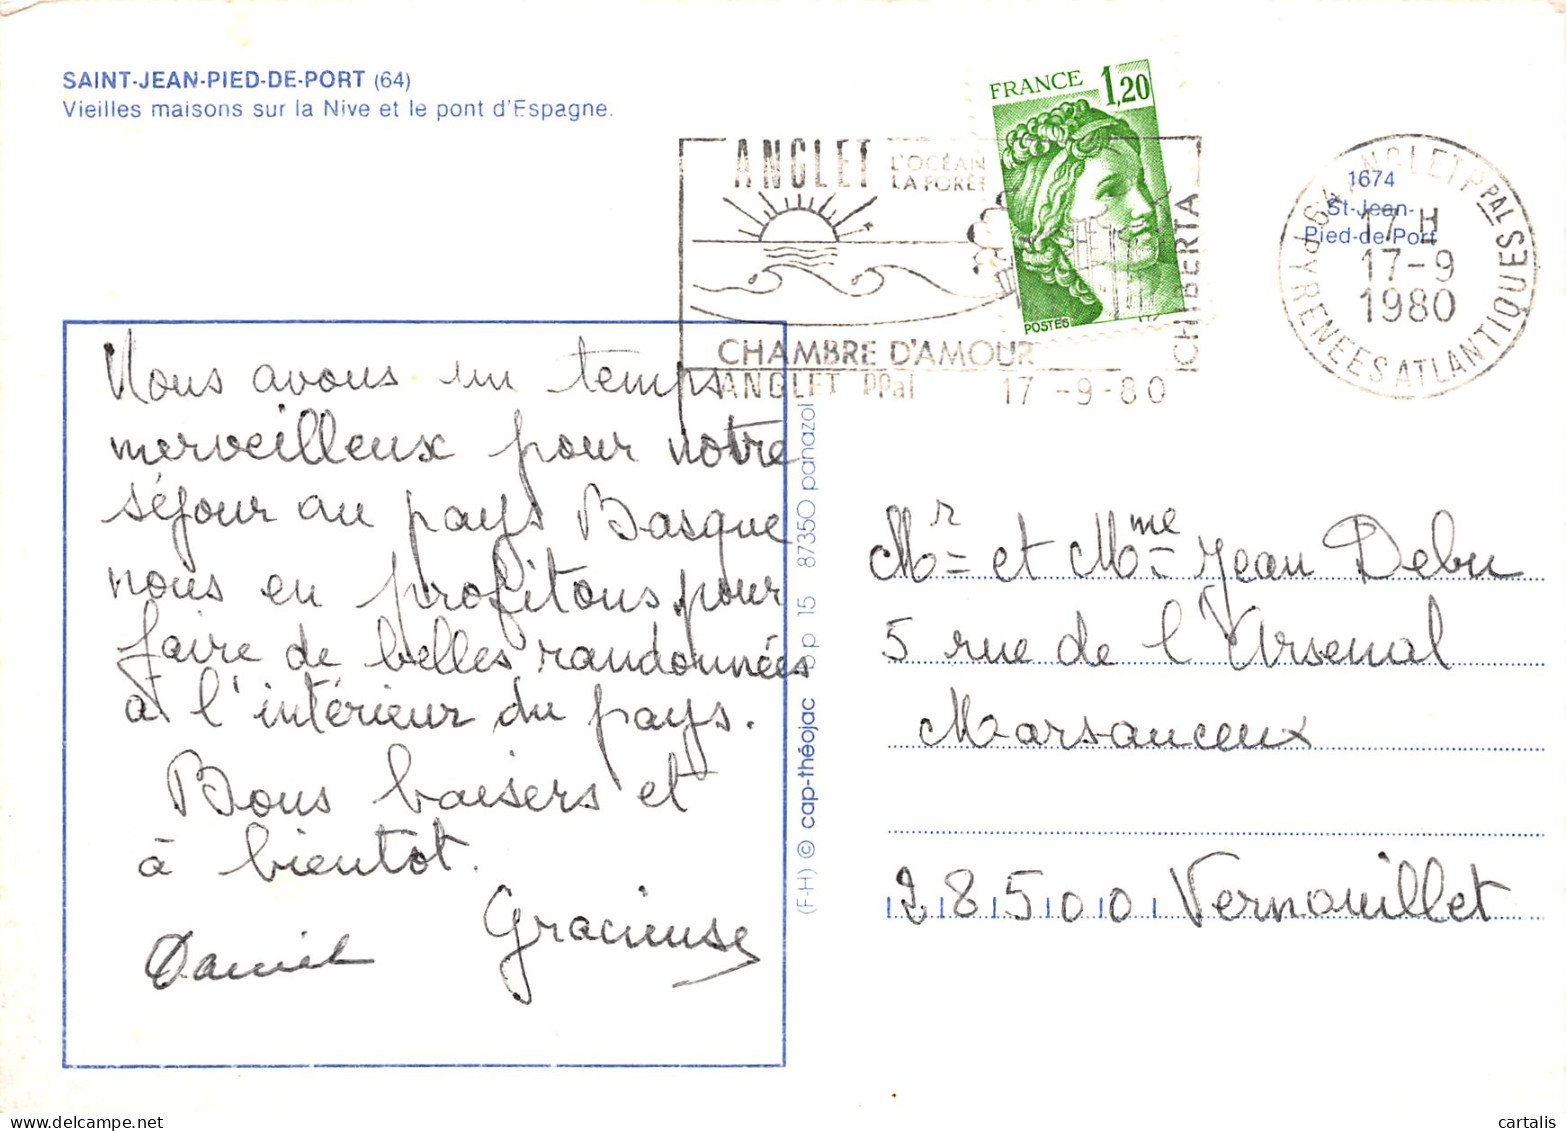 SAINT-JEAN-PIED-DE-PORT (64)
Vieilles maisons sur la Nive et le pont d'Espagne.
FRANCE 1,20
POSTES
ANGLET
L'OCÉAN
LA FORÊT
CHIBERTA
CHAMBRE D'AMOUR
ANGLET PPal 17 -9-80
64 ANGLET PPAL
17 H
17-9
1980
PYRENEES ATLANTIQUES
1674
St-Jean-
Pied-de-Port
Nous avons un temps
merveilleux pour notre
séjour au pays Basque
nous en profitons pour
faire de belles randonnées
à l'intérieur du pays.
Bons baisers et
à bientot.
Gracieuse
Daniel
(F-H) © cap-théojac bp 15 87350 panazol
Mr et Mme Jean Debu
5 rue de l'Arsenal
Marsauceux
28500 Vernouillet
cartalis